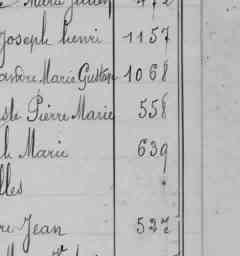 Marie Julien 472
Joseph henri 1157
andre Marie Gustave 1068
Pierre Marie 558
Marie 639
lles
Jean 527